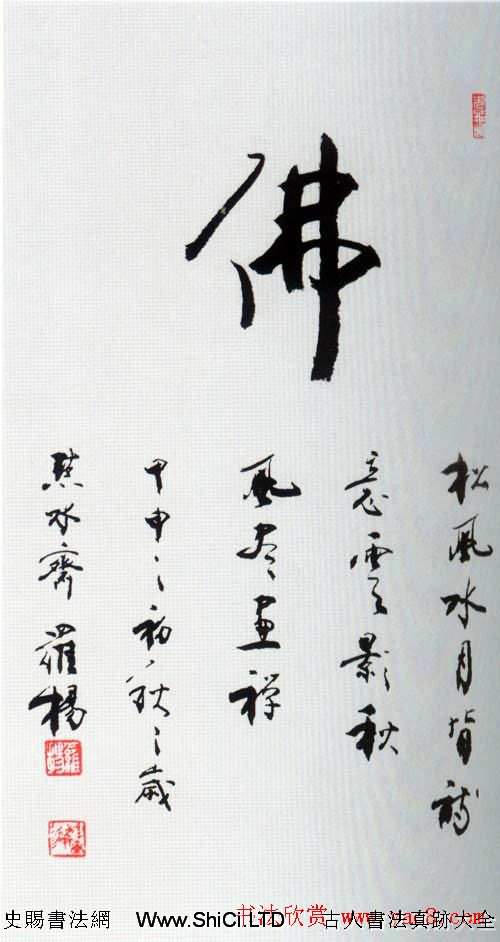 佛
松風水月皆詩
意雲影秋
風尽畫禅
甲申之初秋之歲
水齋 羅楊
史賜書法網 Www.ShiCi.LTD 古人書法真跡大全
书法欣赏